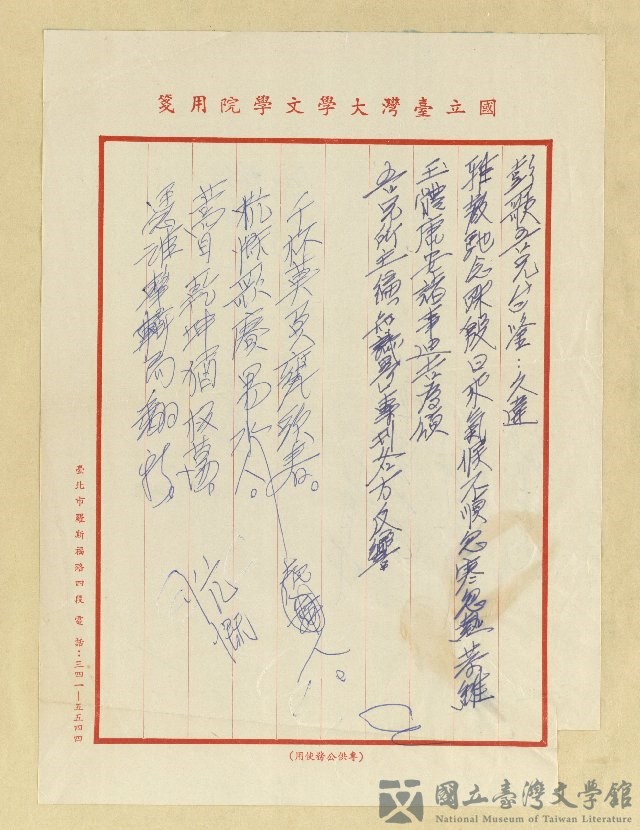 國立臺灣大學文學院用箋
彭歌吾兄台鑒：久違
雅教馳念殊殷日來氣候不順忽寒忽熱恭維
玉體康安諸事迪吉為頌
吾兄所主編知識界專刊各方反響
千杯莫負甕頭春。
慷慨歌廣易水人。
人。
慷慨
乾坤猶板蕩。
憑誰翻新。
臺北市羅斯福路四段 電話：三四一—五五四四
(專供公務使用)
國立臺灣文學館
National Museum of Taiwan Literature